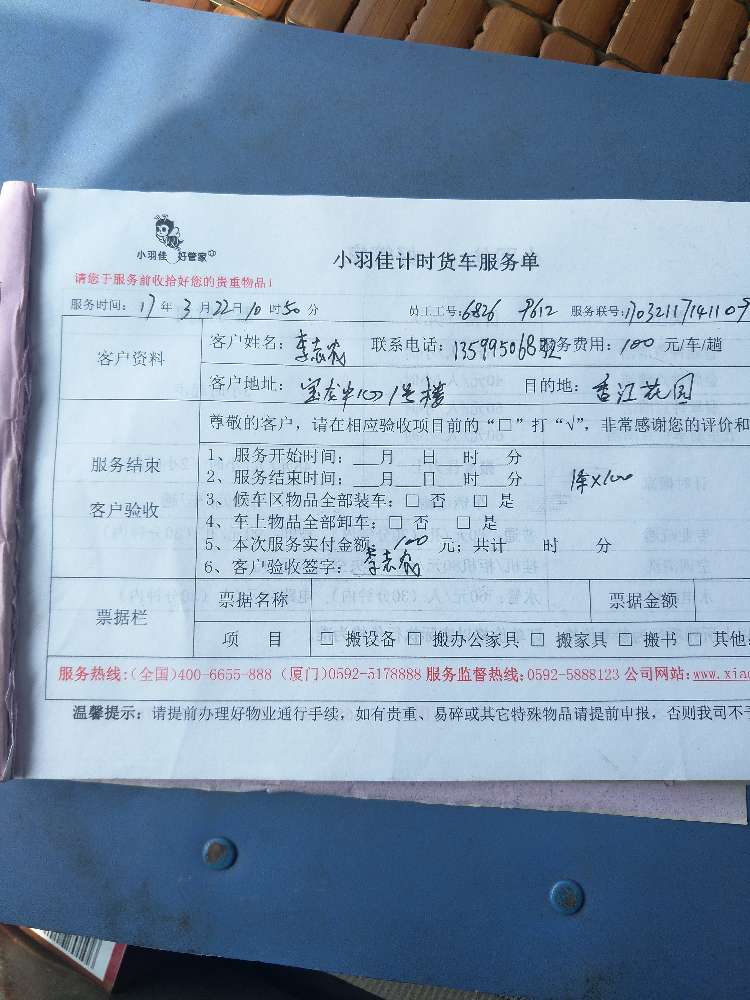 小羽佳 好管家
小羽佳计时货车服务单
请您于服务前收拾好您的贵重物品！
服务时间：17年3月22日10时50分 员工工号：6826 9612 服务联号：1703211714110
客户资料
客户姓名：李志农 联系电话：135995068 服务费用：100 元/车/趟
客户地址：宝龙中心1号楼 目的地：香江花园
尊敬的客户，请在相应验收项目前的“□”打“√”，非常感谢您的评价和
服务结束
客户验收
1、服务开始时间：___月 日 时 分
2、服务结束时间：___月 日 时 分
3、候车区物品全部装车：□ 否 □ 是
4、车上物品全部卸车：□ 否 □ 是
X100
5、本次服务实付金额：100 元；共计 时 分
6、客户验收签字：李志农
票据栏
票据名称 票据金额
项 目 □ 搬设备 □ 搬办公家具 □ 搬家具 □ 搬书 □ 其他：
服务热线：(全国)400-6655-888 (厦门)0592-5178888 服务监督热线：0592-5888123 公司网站：www.xiao
温馨提示：请提前办理好物业通行手续，如有贵重、易碎或其它特殊物品请提前申报，否则我司不予